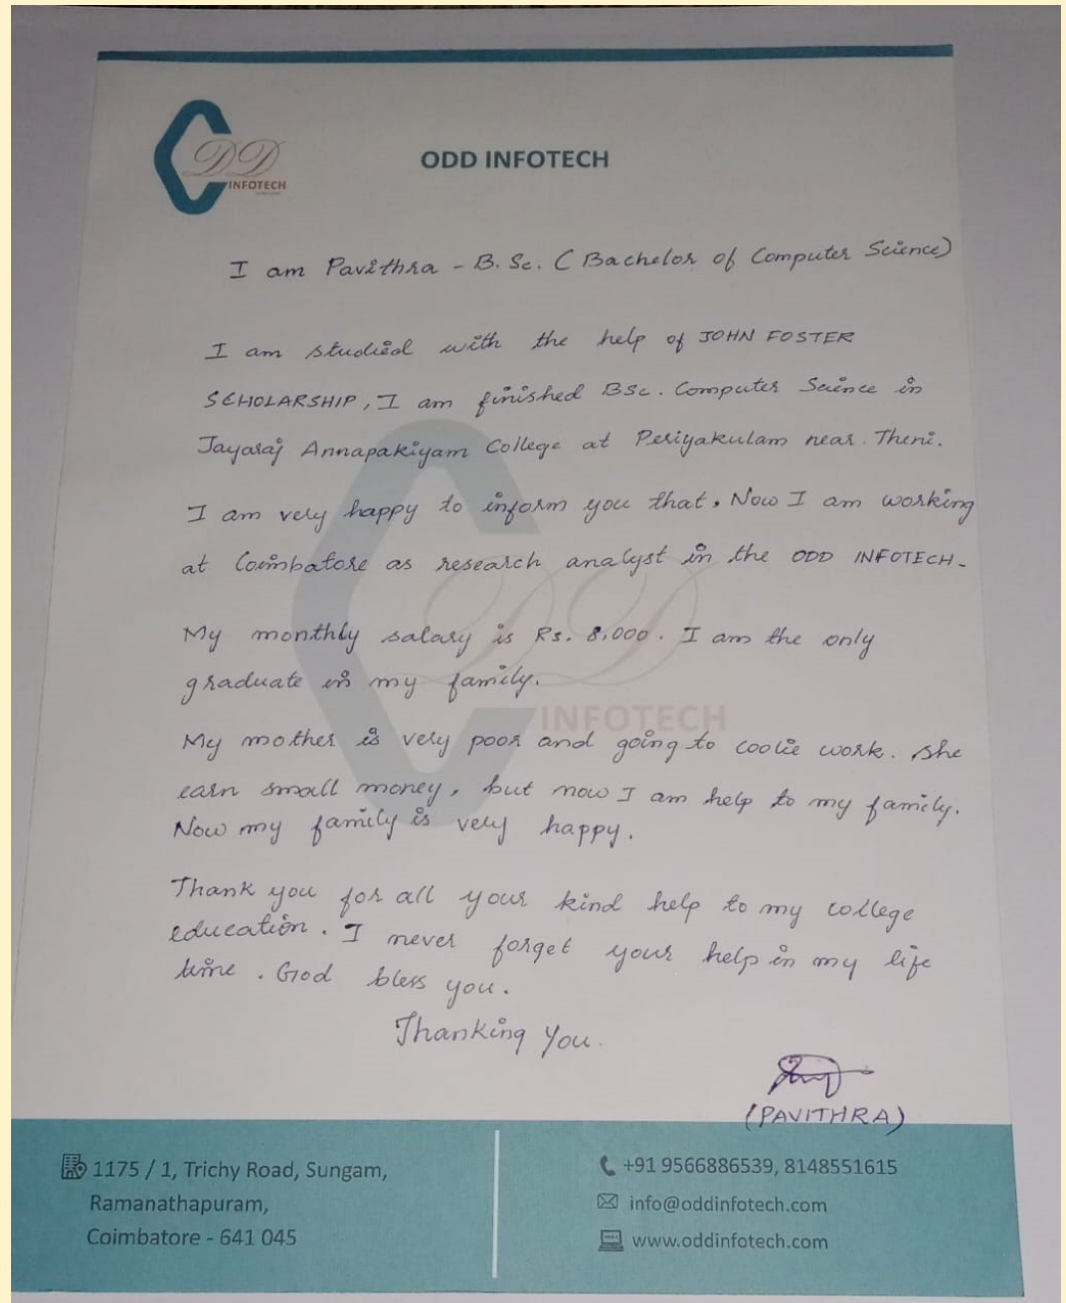 DD
INFOTECH
ODD INFOTECH
I am Pavithra - B.Sc. (Bachelor of Computer Science)
I am studied with the help of JOHN FOSTER
SCHOLARSHIP, I am finished BSc. Computer Science in
Jayaraj Annapakiyam College at Periyakulam near Theni.
I am very happy to inform you that, Now I am working
at Coimbatore as research analyst in the ODD INFOTECH.
My monthly salary is Rs. 8,000. I am the only
graduate in my family.
DD
INFOTECH
My mother is very poor and going to coolie work. She
earn small money, but now I am help to my family.
Now my family is very happy.
Thank you for all your kind help to my college
education. I never forget your help in my life
time. God bless you.
Thanking You.
(PAVITHRA)
1175 / 1, Trichy Road, Sungam,
Ramanathapuram,
Coimbatore - 641 045
+91 9566886539, 8148551615
info@oddinfotech.com
www.oddinfotech.com